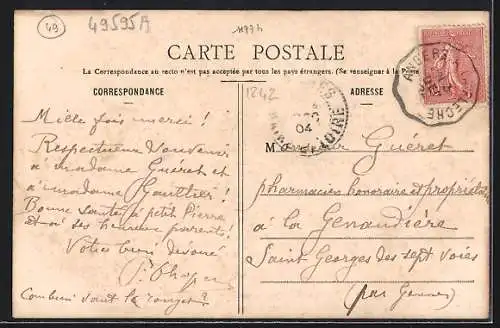 49
49595A
CARTE POSTALE
La Correspondance au recto n'est pas acceptée par tous les pays étrangers. (Se renseigner à la Poste
CORRESPONDANCE
ADRESSE
1242
ANGERS
FLÈCHE
04
LOIRE
Mille fois merci !
Respectueux Souvenir
à madame Guéret et
à madame Gaulthier !
Bonne santé à petit Pierre
et à ses heureux parents !
Votre bien dévoué
Combien vaut la rouget ?
M Guéret
pharmacien honoraire et propriéta
à la Genaudière
Saint Georges des sept voies
(par Gennes)